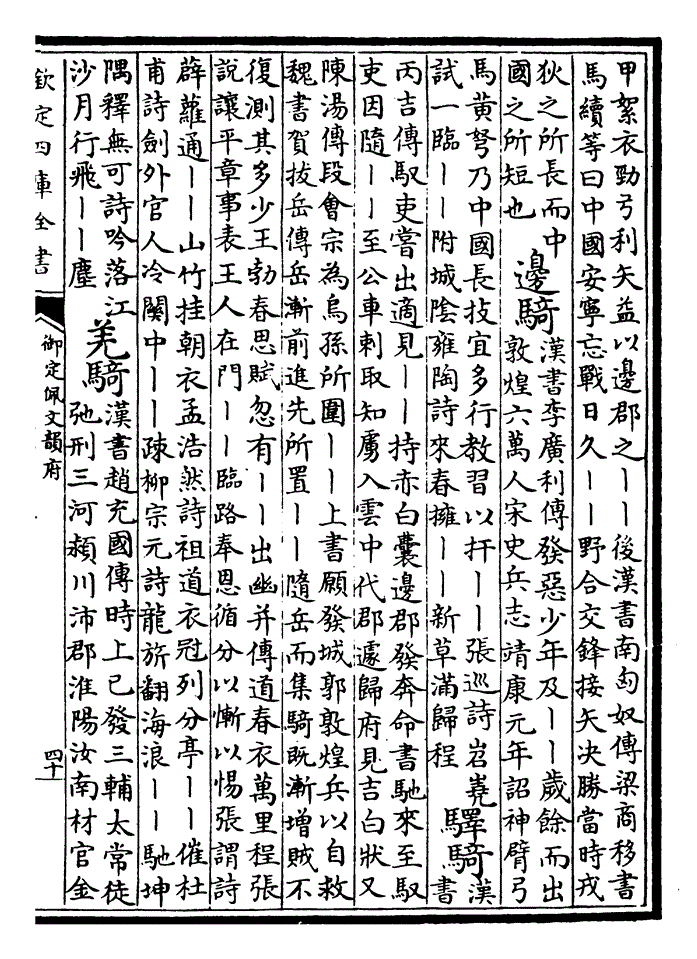 甲絮衣勁弓利矢益以邊郡之｜｜後漢書南匈奴傳梁商移書
馬續等曰中國安寧忘戰日久｜｜野合交鋒接矢決勝當時戎
狄之所長而中
國之所短也
邊騎
漢書李廣利傳發惡少年及｜｜歲餘而出
敦煌六萬人宋史兵志靖康元年詔神臂弓
馬黄弩乃中國長技宜多行教習以扞｜｜張巡詩岧嶤
試一臨｜｜附城陰雍陶詩來春擁｜｜新草滿歸程
驛騎
漢
書
丙吉傳馭吏嘗出適見｜｜持赤白囊邊郡發奔命書馳來至馭
吏因隨｜｜至公車刺取知虜入雲中代郡遽歸府見吉白狀又
陳湯傳段會宗為烏孫所圍｜｜上書願發城郭敦煌兵以自救
魏書賀拔岳傳岳漸前進先所置｜｜隨岳而集騎既漸增賊不
復測其多少王勃春思賦忽有｜｜出幽并傳道春衣萬里程張
說讓平章事表王人在門｜｜臨路奉恩循分以慚以惕張謂詩
薜蘿通｜｜山竹挂朝衣孟浩然詩祖道衣冠列分亭｜｜催杜
甫詩劍外官人冷關中｜｜疎柳宗元詩龍旂翻海浪｜｜馳坤
隅釋無可詩吟落江
沙月行飛｜｜塵
羌騎
漢書趙充國傳時上已發三輔太常徒
弛刑三河潁川沛郡淮陽汝南材官金
欽定四庫全書
御定佩文韻府
四十